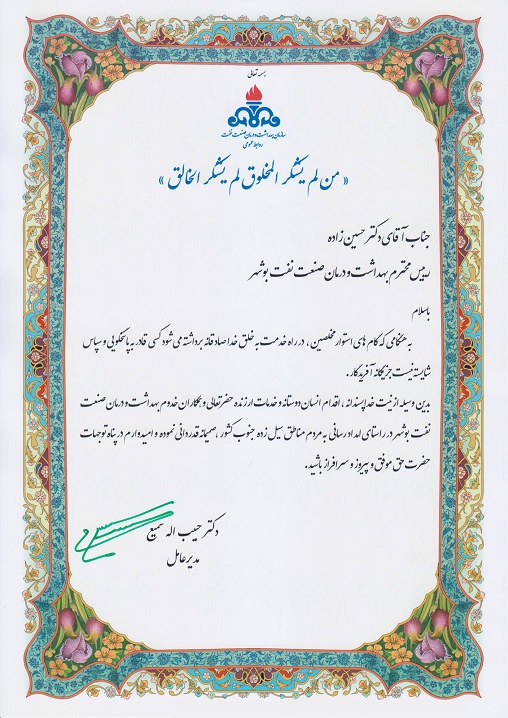 بسمه تعالی
سازمان بهداشت و درمان صنعت نفت
روابط عمومی
« من لم یشکر المخلوق لم یشکر الخالق »
جناب آقای دکتر حسین زاده
رییس محترم بهداشت و درمان صنعت نفت بوشهر
باسلام
به هنگامی که گام های استوار مخلصین ، در راه خدمت به خلق خدا صادقانه برداشته می شود کسی قادر به پاسخگویی و سپاس
شایسته نیست جز یگانه آفریدگار.
بدین وسیله از نیت خداپسندانه ، اقدام انسان دوستانه و خدمات ارزنده حضرتعالی و همکاران خدوم بهداشت و درمان صنعت
نفت بوشهر در راستای امداد رسانی به مردم مناطق سیل زده جنوب کشور ، صمیمانه قدردانی نموده و امیدوارم در پناه توجهات
حضرت حق موفق و پیروز و سرافراز باشید.
دکتر حبیب اله سمیع
مدیرعامل